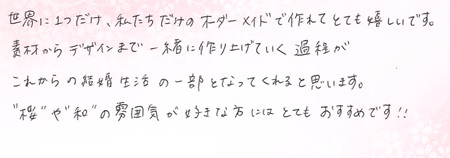 世界に1つだけ、私たちだけのオーダーメイドで作れてとても嬉しいです。
素材からデザインまで一緒に作り上げていく過程が
これからの結婚生活の一部となってくれると思います。
"桜"や"和"の雰囲気が好きな方にはとてもおすすめです!!